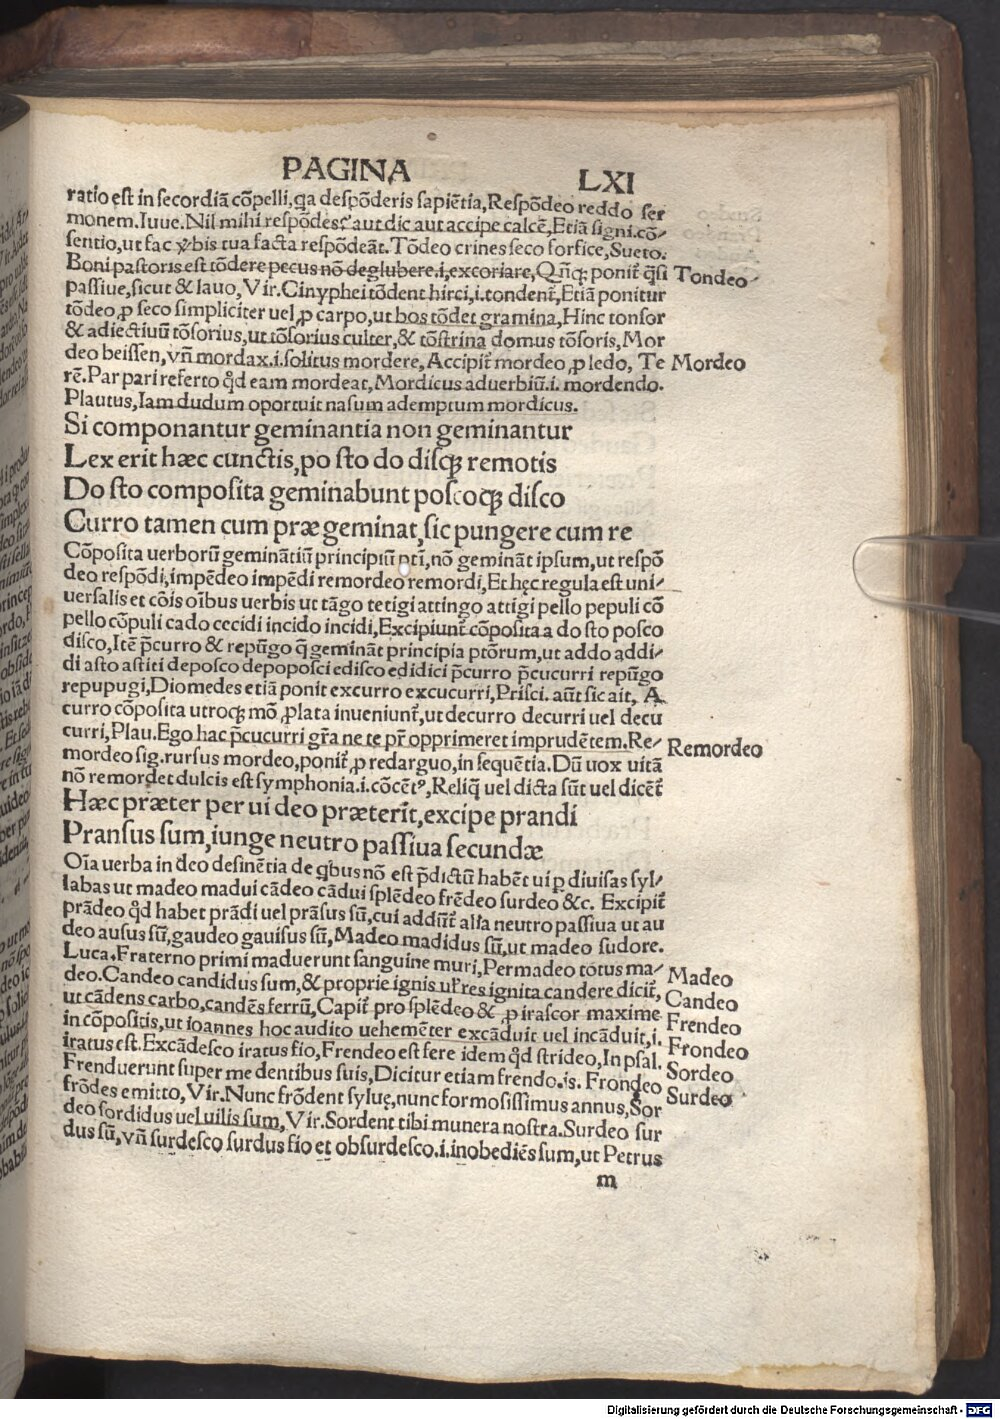 PAGINA LXI
ratio est in secordiã cõpelli, qa despõderis sapiẽtia, Respõdeo reddo ser
monem. Iuue. Nil mihi respõdes? aut dic aut accipe calcẽ, Etiã signi. cõ-
sentio, ut fac v̾bis tua facta respõdeãt. Tõdeo crines seco forfice, Sueto.
Boni pastoris est tõdere pecus nõ deglubere. i, excoriare, Qñq; ponit̃ q̃si Tondeo
passiue, sicut & lauo, Vir. Cinyphei tõdent hirci, i. tondent̃, Etiã ponitur
tõdeo, ꝓ seco simpliciter uel, ꝓ carpo, ut bos tõdet gramina, Hinc tonsor
& adiectiuũ tõsorius, ut tõsorius culter, & tõstrina domus tõsoris, Mor
deo beissen, vñ mordax. i. solitus mordere, Accipit̃ mordeo, ꝓ ledo, Te Mordeo
rẽ. Par pari referto q̊d eam mordeat, Mordicus aduerbiũ. i. mordendo.
Plautus, Iam dudum oportuit nasum ademptum mordicus.
Si componantur geminantia non geminantur
Lex erit hæc cunctis, po sto do disqꝫ remotis
Do sto composita geminabunt poscoqꝫ disco
Curro tamen cum præ geminat, sic pungere cum re
Cõposita uerborũ geminãtiũ principiũ p̄ti, nõ geminãt ipsum, ut respõ
deo respõdi, impẽdeo impẽdi remordeo remordi, Et hęc regula est uni-
uersalis et cõis oĩbus uerbis ut tãgo tetigi attingo attigi pello pepuli cõ
pello cõpuli cado cecidi incido incidi, Excipiunt̃ cõposita a do sto posco
disco, Itẽ p̃curro & repũgo q̃ geminãt principia ptõrum, ut addo addi-
di asto astiti deposco depoposci edisco edidici p̃curro p̃cucurri repũgo
repupugi, Diomedes etiã ponit excurro excucurri, Prisci. aũt sic ait, A
curro cõposita utroqꝫ mõ, ꝓlata inueniunt̃, ut decurro decurri uel decu
curri, Plau. Ego hac p̃cucurri gr̃a ne te p̃r opprimeret imprudẽtem. Re- Remordeo
mordeo sig. rursus mordeo, ponit̃, ꝓ redarguo, in sequẽtia. Dũ uox uitã
nõ remordet dulcis est symphonia. i. cõcẽtꝰ, Reliq̃ uel dicta sũt uel dicẽt̃
Hæc præter per ui deo præterit, excipe prandi
Pransus sum, iunge neutro passiua secundæ
Oĩa uerba in deo desinẽtia de qbus nõ est p̃dictũ habẽt ui ꝑ diuisas syl-
labas ut madeo madui cãdeo cãdui splẽdeo frẽdeo surdeo &c. Excipit̃
prãdeo q̊d habet prãdi uel prãsus sũ, cui addũt̃ alia neutro passiua ut au
deo ausus sũ, gaudeo gauisus sũ, Madeo madidus sũ, ut madeo sudore.
Luca. Fraterno primi maduerunt sanguine muri, Permadeo totus ma- Madeo
deo. Candeo candidus sum, & proprie ignis uł res ignita candere dicit̃, Candeo
ut cãdens carbo, candẽs ferrũ, Capit̃ pro splẽdeo & ꝓ irascor maxime Frendeo
in cõpositis, ut ioannes hoc audito uehemẽter excãduit uel incãduit, i. Frondeo
iratus est. Excãdesco iratus fio, Frendeo est fere idem q̊d strideo, In psal. Sordeo
Frenduerunt super me dentibus suis, Dicitur etiam frendo. is. Frondeo Surdeo
frõdes emitto, Vir. Nunc frõdent syluę, nunc formosissimus annus, Sor
deo sordidus uel uilis sum, Vir. Sordent tibi munera nostra. Surdeo sur
dus sũ, vñ surdesco surdus fio et obsurdesco. i. inobediẽs sum, ut Petrus
m
Digitalisierung gefördert durch die Deutsche Forschungsgemeinschaft - DFG